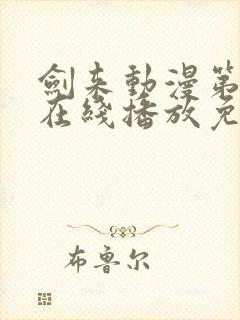 劍来動漫第
在綫播放免
布鲁尔